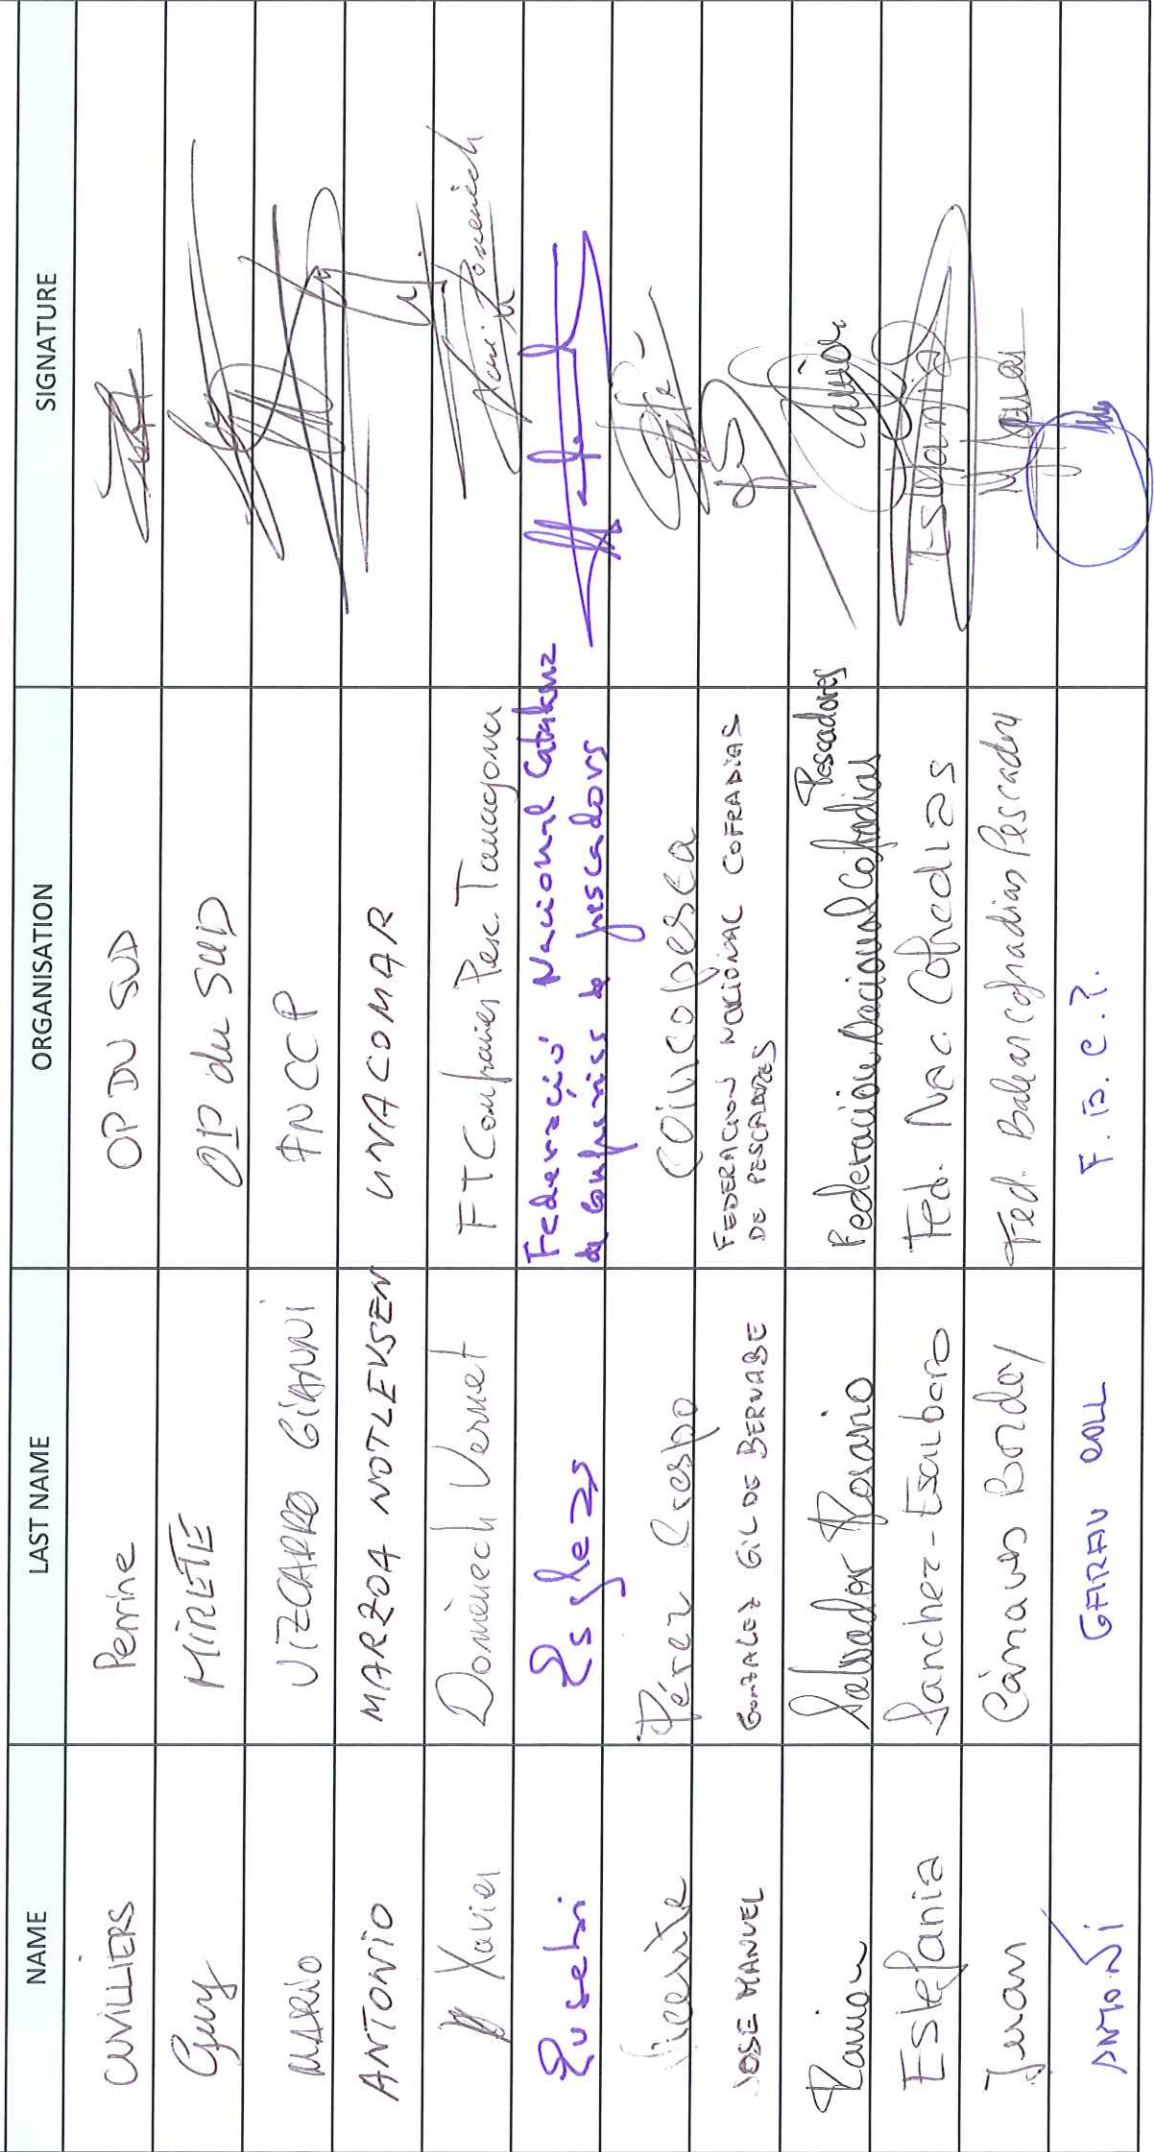 NAME LAST NAME ORGANISATION SIGNATURE
CUVILLIERS Perrine OP DU SUD
Guy MIRETE OP du SUD
MARIO VIZCARRO GIANNI FNCCP
ANTONIO MARZOA NOTLEVSEN UNACOMAR
Xavier Domènech Vernet FT Confraries Pesc. Tarragona Xavier Domenech
Eusebi Esgleas Federació Nacional Catalana
de Confraries de pescadors
Vicente Pérez Crespo Coincopesca
JOSE MANUEL GONZALEZ GIL DE BERNABE FEDERACION NACIONAL COFRADIAS
DE PESCADORES
Ramon Salvador Rosario Federación Nacional Cofradias
Pescadores
Estefania Sanchez-Escribano Fed. Nac. Cofradias Estefania
Juan Cànaves Fed. Balear cofradias Pescadores
ANTONI GARAU COLL F.B.C.P.